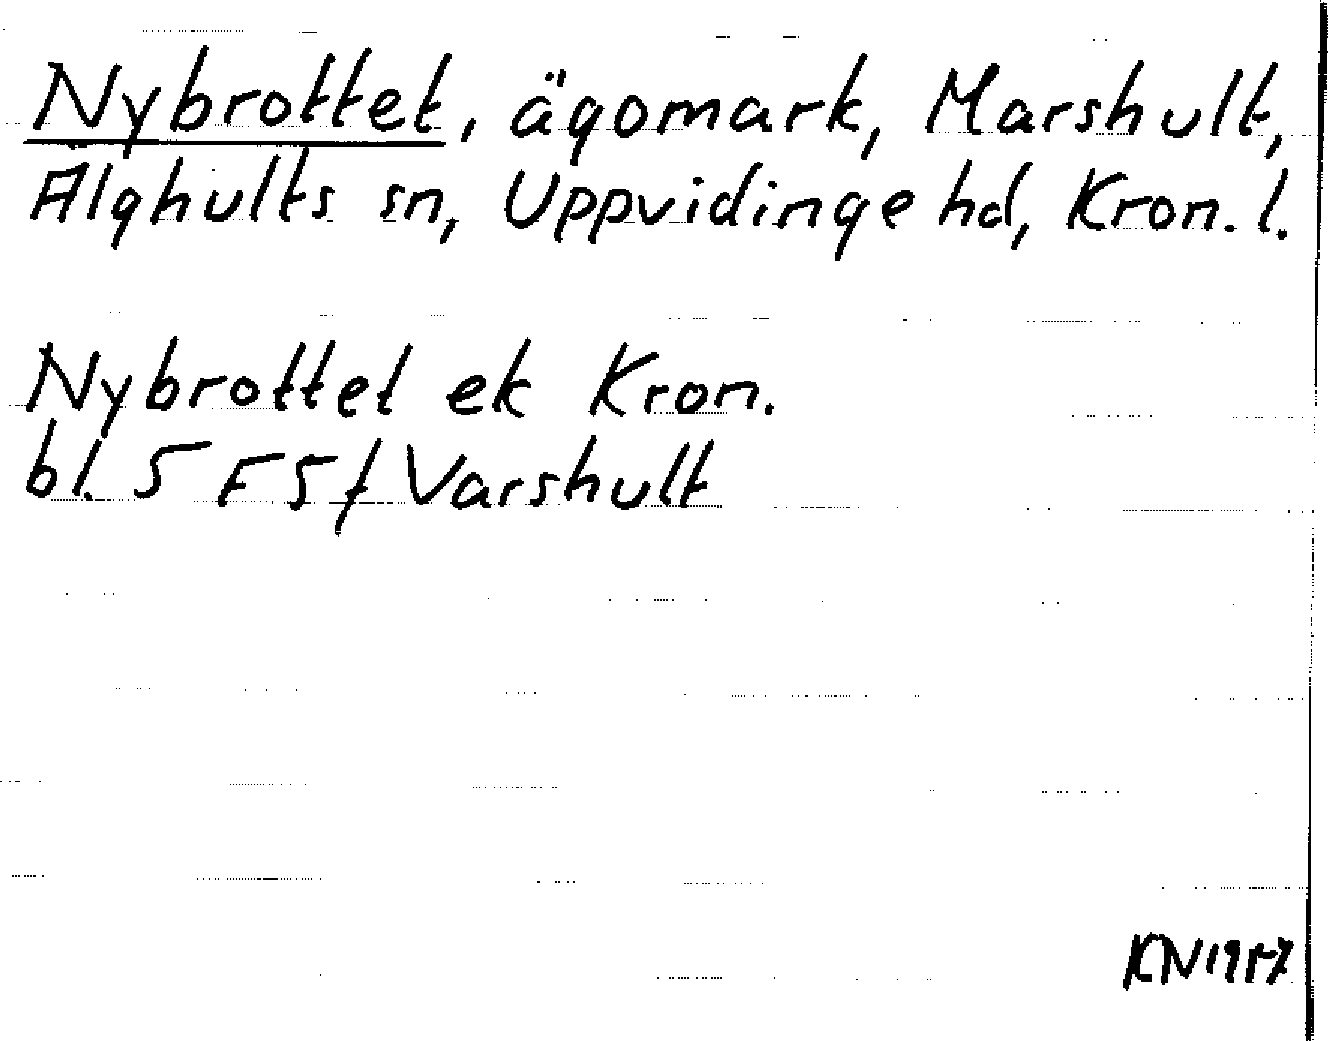 Nybrottet, ägomark, Marshult,
Älghults sn, Uppvidinge hd, Kron. l.
Nybrottet ek Kron.
bl. 5 F 5 f Varshult